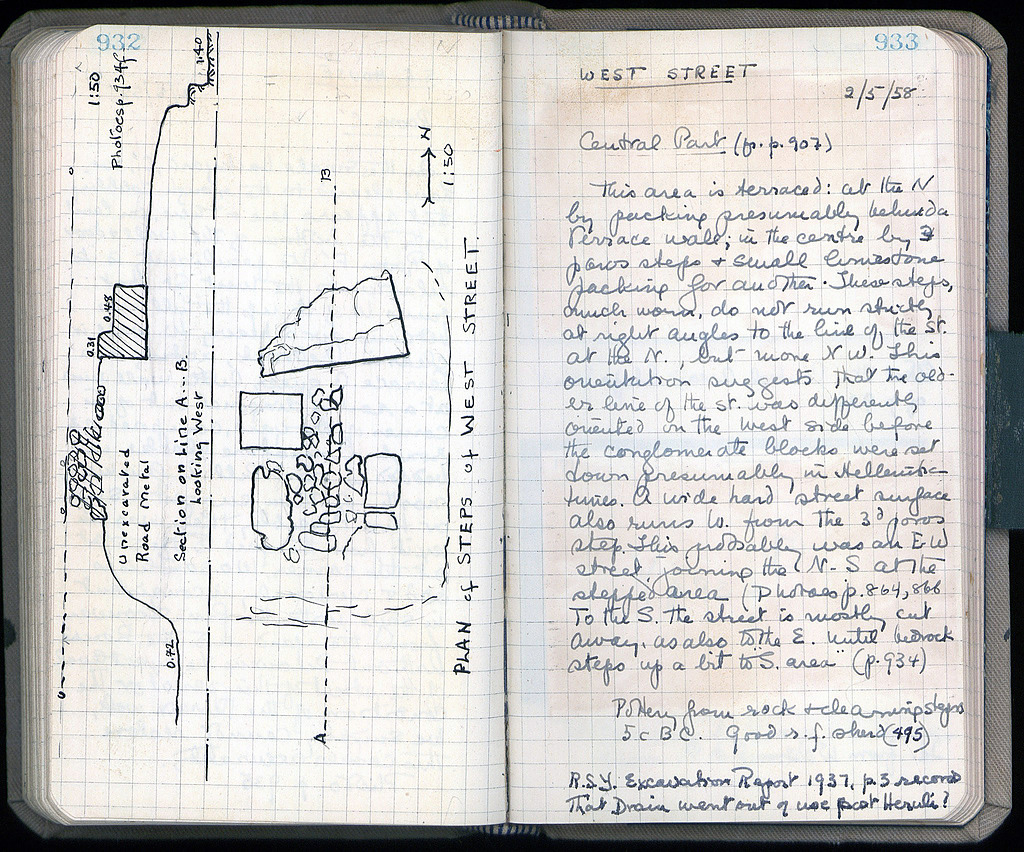 932
1:50
Photoes p. 934f
1.40
0.48
0.31
Unexcavated
Road Metal
Section on Line A...B.
Looking West
0.72
A
B
N
1:50
PLAN of STEPS of WEST STREET.
933
WEST STREET
2/5/58
Central Part (fr. p. 907)
This area is terraced: at the N
by packing presumably behind a
Terrace wall; in the centre by 3
poros steps + small limestone
packing for another. These steps,
much worn, do not run strictly
at right angles to the line of the St.
at the N., but more N W. This
orientation suggests that the old-
er line of the St. was differently
oriented on the West side before
the conglomerate blocks were set
down presumably in Hellenistic
times. A wide hard street surface
also runs W. from the 3d poros
step. This probably was an E-W
street, joining the N-S at the
stepped area (Photoes p. 864, 866
To the S. the street is mostly cut
away, as also to the E. until bedrock
steps up a bit to S. area (p. 934)
Pottery from rock + cleaning steps
5 c B C. Good r. f. sherd (495)
R.S.Y. Excavation Report 1937, p. 3 records
That Drain went out of use post Heruli?